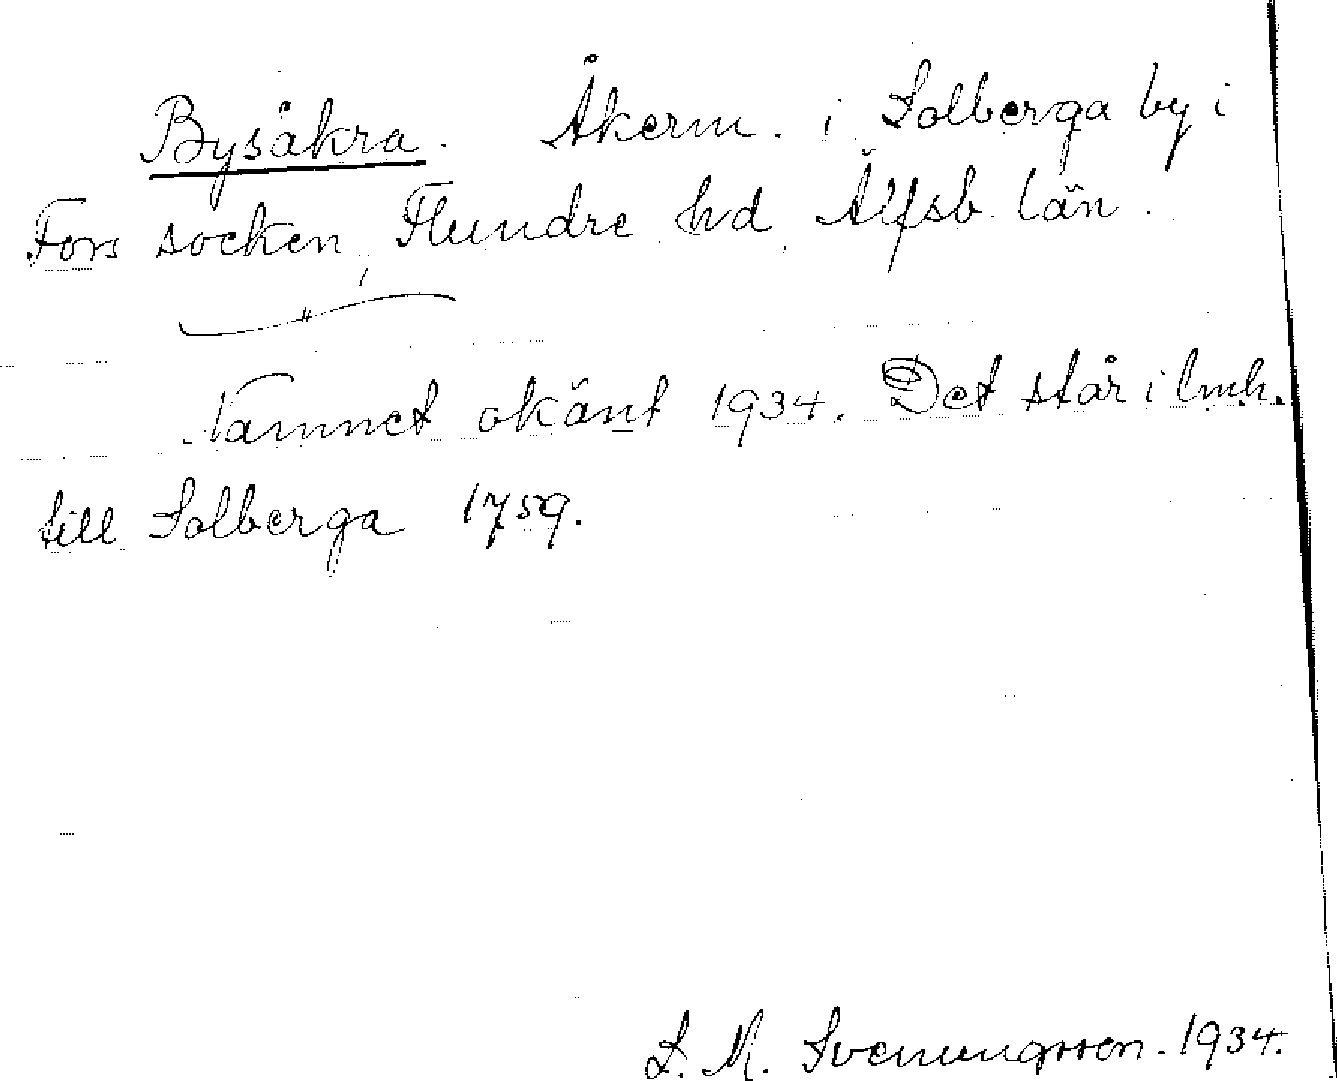 Bysåkra. Åkerm. i Solberga by i
Fors socken, Flundre hd, Älfsb. län.
Namnet okänt 1934. Det står i lmh.
till Solberga 1759.
S. M. Svenungsson. 1934.